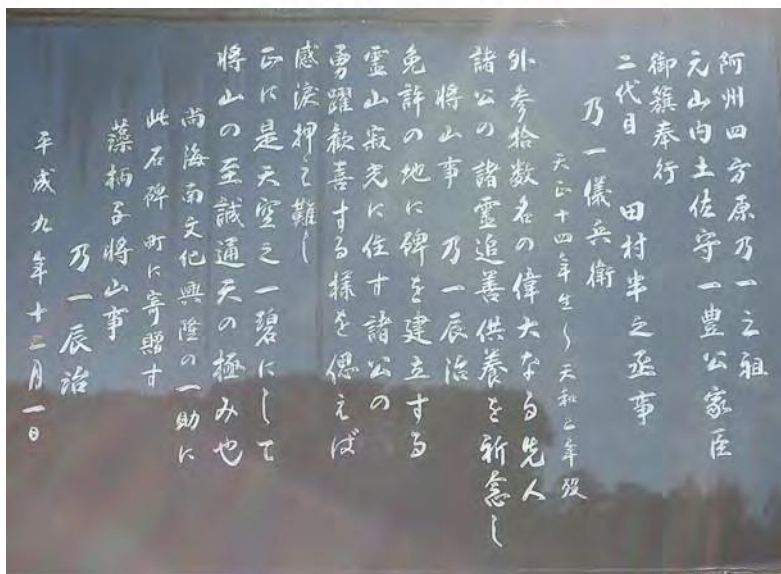 阿州四方原乃一之祖
元山内土佐守一豊公家臣
御籏奉行
二代目 田村半之丞事
乃一儀兵衛
天正十四年生〜天和二年歿
外参拾数名の偉大なる先人
諸公の諸霊追善供養を祈念し
将山事 乃一辰治
免許の地に碑を建立する
霊山寂光に住す諸公の
勇躍歓喜する様を偲えば
感涙押え難し
正に是天空之一碧にして
将山の至誠通天の極み也
尚海南文化興隆の一助に
此石碑町に寄贈す
藻柄子将山事
乃一辰治
平成九年十二月一日